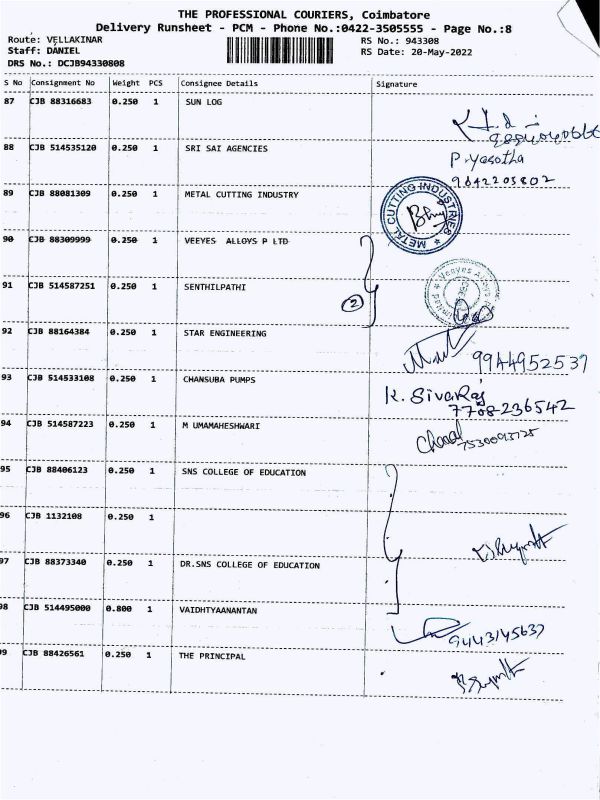 THE PROFESSIONAL COURIERS, Coimbatore
Delivery Runsheet - PCM - Phone No.:0422-3505555 - Page No.:8
Route: VELLAKINAR RS No.: 943308
Staff: DANIEL RS Date: 20-May-2022
DRS No.: DCJB94330808
S No Consignment No Weight PCS Consignee Details Signature
87 CJB 88316683 0.250 1 SUN LOG
88 CJB 514535120 0.250 1 SRI SAI AGENCIES P.Yasotha
9842205802
89 CJB 88081309 0.250 1 METAL CUTTING INDUSTRY METAL CUTTING INDUSTRIES
90 CJB 88309999 0.250 1 VEEYES ALLOYS P LTD
91 CJB 514587251 0.250 1 SENTHILPATHI 2
92 CJB 88164384 0.250 1 STAR ENGINEERING 9944952537
93 CJB 514533108 0.250 1 CHANSUBA PUMPS K. SivaRaj
7708236542
94 CJB 514587223 0.250 1 M UMAMAHESHWARI
95 CJB 88406123 0.250 1 SNS COLLEGE OF EDUCATION
96 CJB 1132108 0.250 1
97 CJB 88373340 0.250 1 DR.SNS COLLEGE OF EDUCATION
98 CJB 514495000 0.800 1 VAIDHTYAANANTAN 9443145637
99 CJB 88426561 0.250 1 THE PRINCIPAL